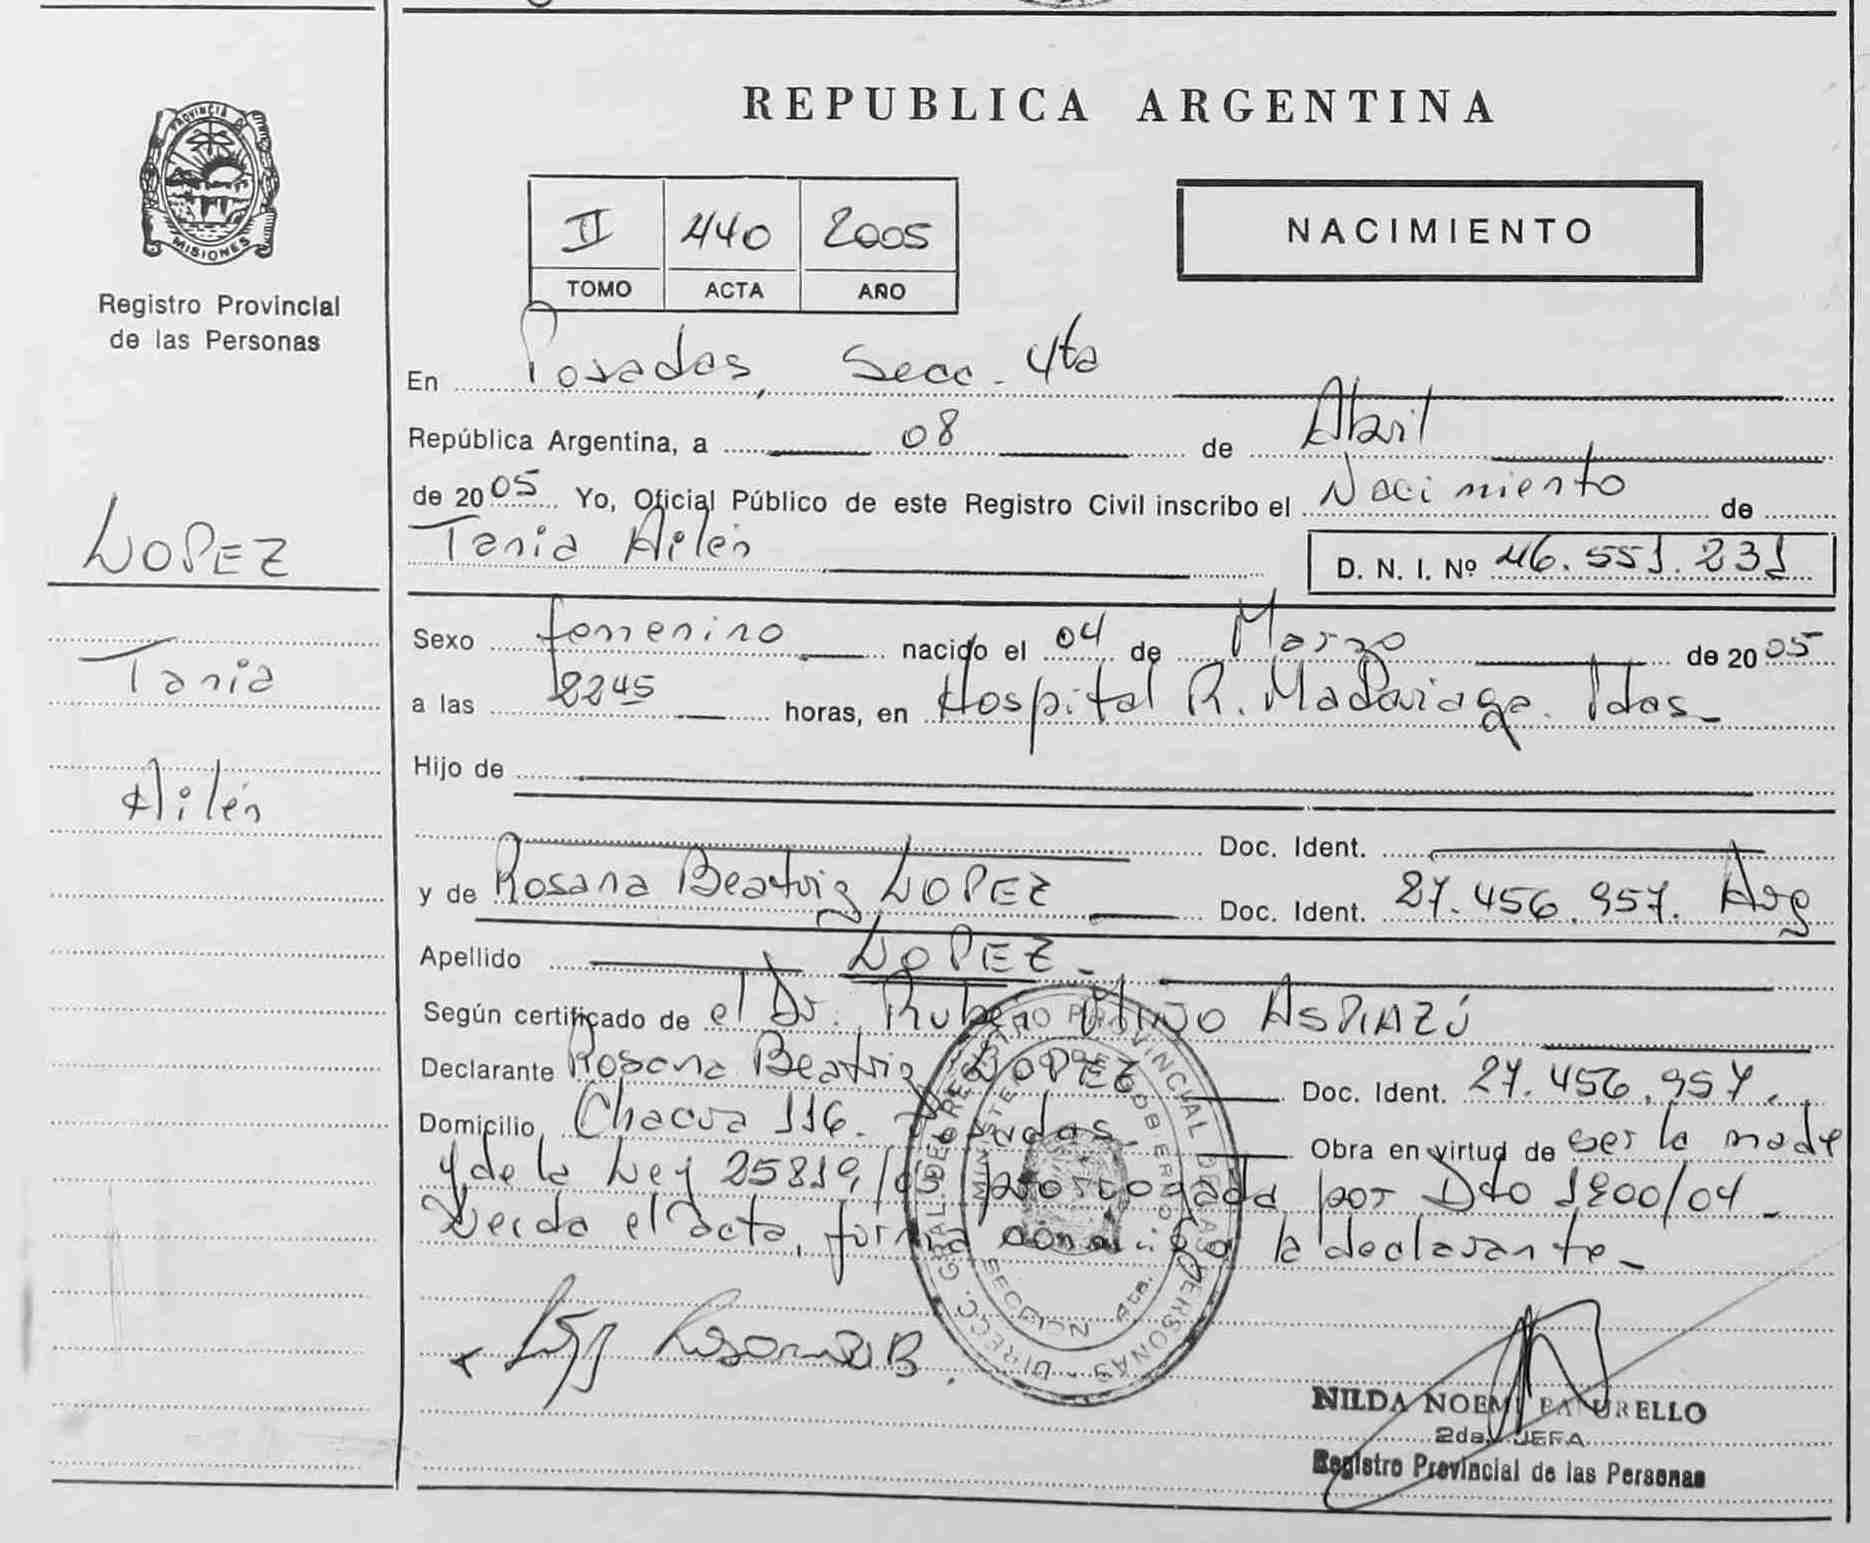 PROVINCIA DE
MISIONES
Registro Provincial
de las Personas
LOPEZ
Tania
Ailén
REPUBLICA ARGENTINA
II 440 2005
TOMO ACTA AÑO
NACIMIENTO
En Posadas, Secc. 4ta
República Argentina, a 08 de Abril
de 2005 Yo, Oficial Público de este Registro Civil inscribo el Nacimiento de
Tania Ailén D. N. I. Nº 46.551.231
Sexo femenino nacido el 04 de Marzo de 2005
a las 2245 horas, en Hospital R. Madariaga. Pdas_
Hijo de
Doc. Ident.
y de Rosana Beatriz LOPEZ Doc. Ident. 27.456.957. Arg
Apellido LOPEZ_
Según certificado de el Dr. Rubén Miño ASPIAZÚ
Declarante Rosana Beatriz LOPEZ Doc. Ident. 27.456.957.
Domicilio Chacra 116. Posadas. Obra en virtud de ser la madre
y de la Ley 25819, prorrogada por Dto 1200/04_
Leída el acta, firma conmigo la declarante_
DIRECC. GRAL. DEL REGISTRO PROVINCIAL DE LAS PERSONAS
MINISTERIO DE GOBIERNO
SECCION 4ta.
NILDA NOEMI
2da. JEFA
Registro Provincial de las Personas